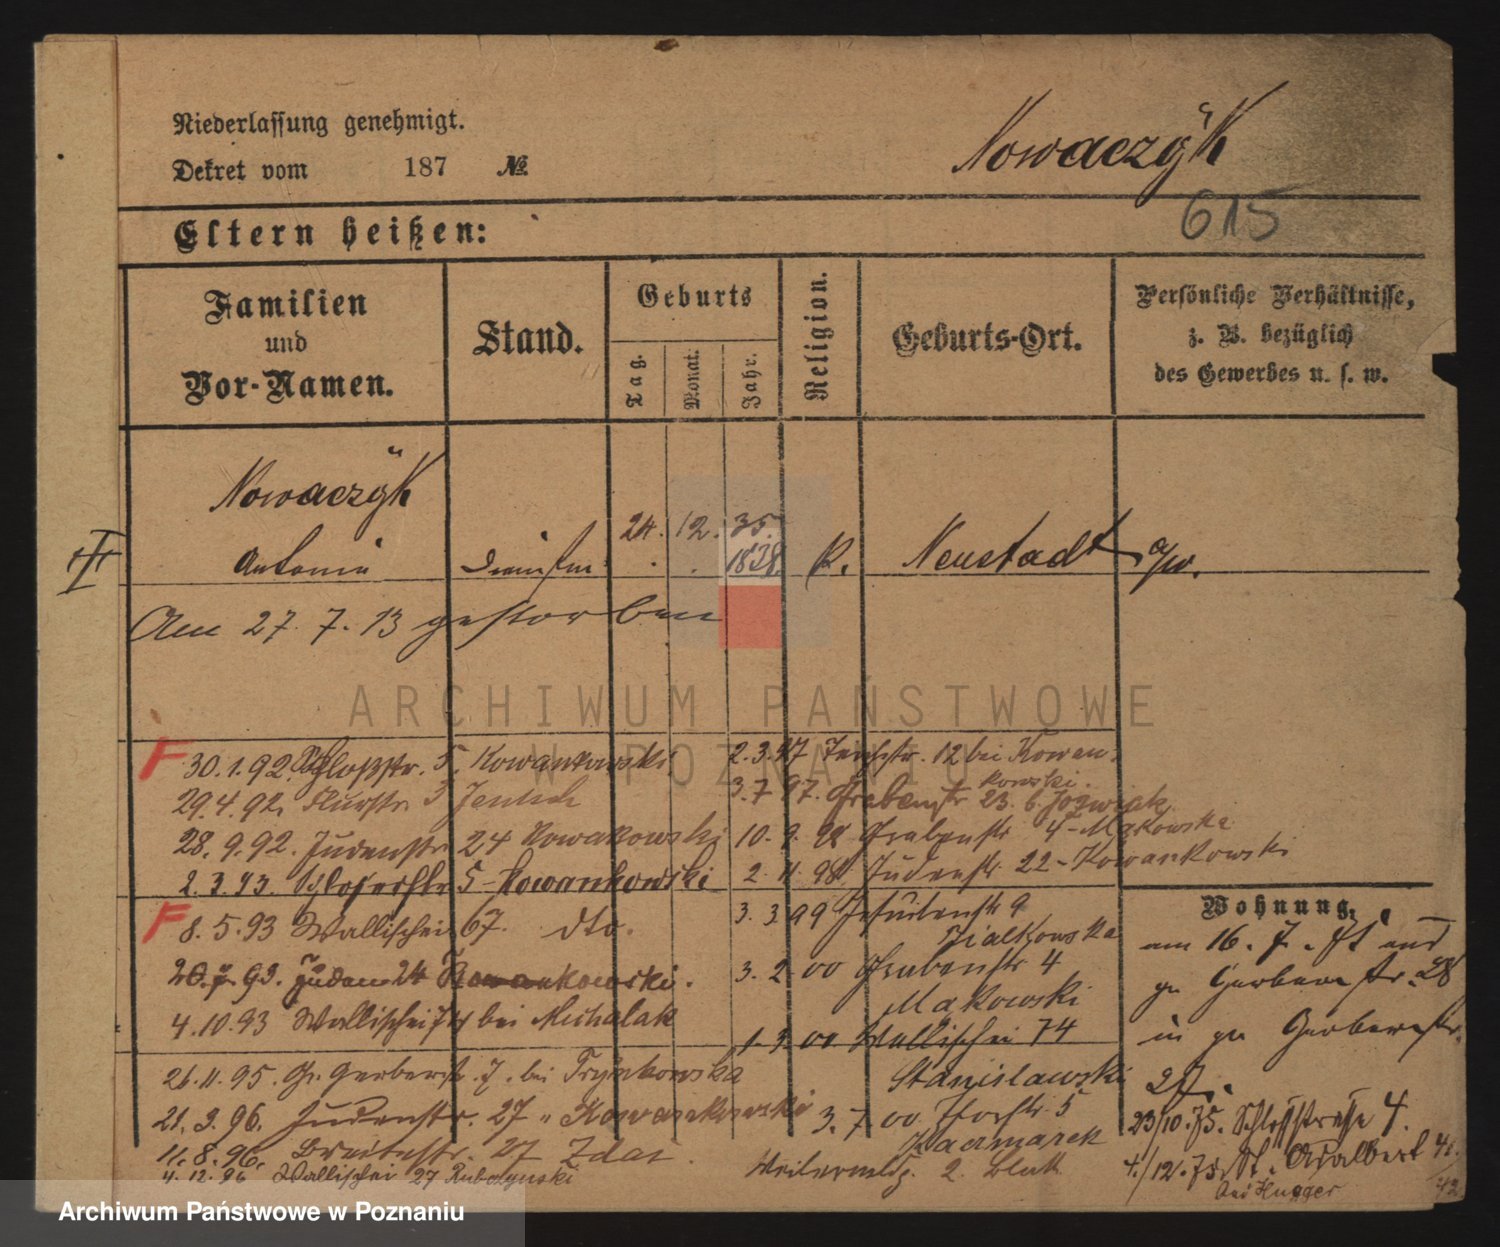 Niederlassung genehmigt.
Dekret vom 187 №
Nowaczÿk
615
Eltern heißen:
Familien
und
Vor-Namen.
Stand.
Geburts
Tag.
Monat.
Jahr.
Religion.
Geburts-Ort.
Persönliche Verhältnisse,
z. B. bezüglich
des Gewerbes u. s. w.
Nowaczÿk
24. 12. 35.
Antonie
1838
k. Neustadt a/w.
Am 27. 7. 13 gestorben
F 30.1.92. Schloßstr. 5. Kowankowski
29.4.92. 3 Jentsch
28.9.92. Judenstr. 24 Kowakowski
2.3.93. Schloserstr 5 - Kowankowski
F 8.5.93 Wallischei 67. dto.
93. Juden 24 Kowankowski.
4.10.93 Wallischei 74 bei Michalak
26.11.95. Gr. Gerberst. 7. bei Frynkowska
21.3.96. Judenstr. 27 " Kowankowski
11.8.96. Breitestr. 27 Zdai.
4.12.96 Wallischei 27
2.3.97 12 bei Kowan-
kowski.
3.7.97. Grabenstr 23. b. Jozwiak
10.9.98 Grabenstr 4 - Makowska
2.11.98. Judenstr 22 - Kowankowski
3.3.99 Jesuitenstr 9
Zialkowska
3.2.00 Grabenstr 4
Makowski
1.3.00 Wallischei 74
Stanislawski
3.7.00 Torstr. 5
Kaczmarek
2.
Wohnung.
am 16. 7. 75 aus
gr Gerberstr. 28
in gr Gerberstr.
27.
23/10.75. Schloßstrasse 4.
4/12.75. St. Adalbert 41/
42
bei Hugger
ARCHIWUM PAŃSTWOWE
W POZNANIU
Archiwum Państwowe w Poznaniu